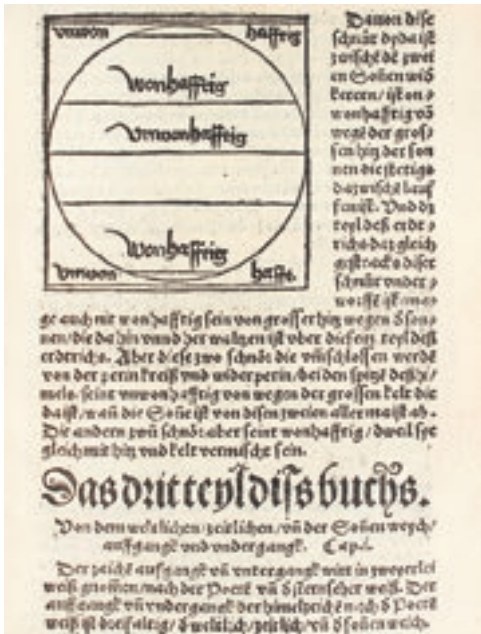 vnwon hafftig
wonhafftig
Vnwonhafftig
Wonhafftig
Vnwon hafft.
Dauon dise
schnůr dyda ist
zwischē dē zwei
en Soñen wid
kerern / ist on
wonhafftig vō
wegē der gros
sen hitz der son
nen die stetigs
dazwischē lauf
Vnd dz
teyl deß erdt
richs daz gleich
gestracks diser
schnůr vnder
ge auch nit wonhafftig sein von grosser hitz wegen ð son
nen / die da hin vnnd her waltzen ist vber disem teyl deß
erdtrichs. Aber diese zwo schnöt die vm̄schlossen werdē
von der zerin kreiß vnd widerperin / bei den spitzē deß hi
mels / seint vnwonhafftig von wegen der grossen kelt die
da ist / wañ die Soñe ist von disen zweien aller maist ab.
Die andern zwů schnöt aber seint wonhafftig / dweil sye
gleich mit hitz vnd kelt vermischt sein.
Das drit teyl diss buchs.
Von dem weltlichen / zeitlichen / vñ der Soñen weych /
auffgangk vnd vndergangk. Cap.i.
Der zaichē auffgangk vñ vntergangk wirt in zweyerlei
weiß genom̄en / nach der Poetē vñ ð sternseher weiß. Der
auffgangk vñ vndergangk der himelzaichē nach ð Poetē
weiß ist dreifaltig / ð weltlich / zeitlich / vñ ð Soñen weich